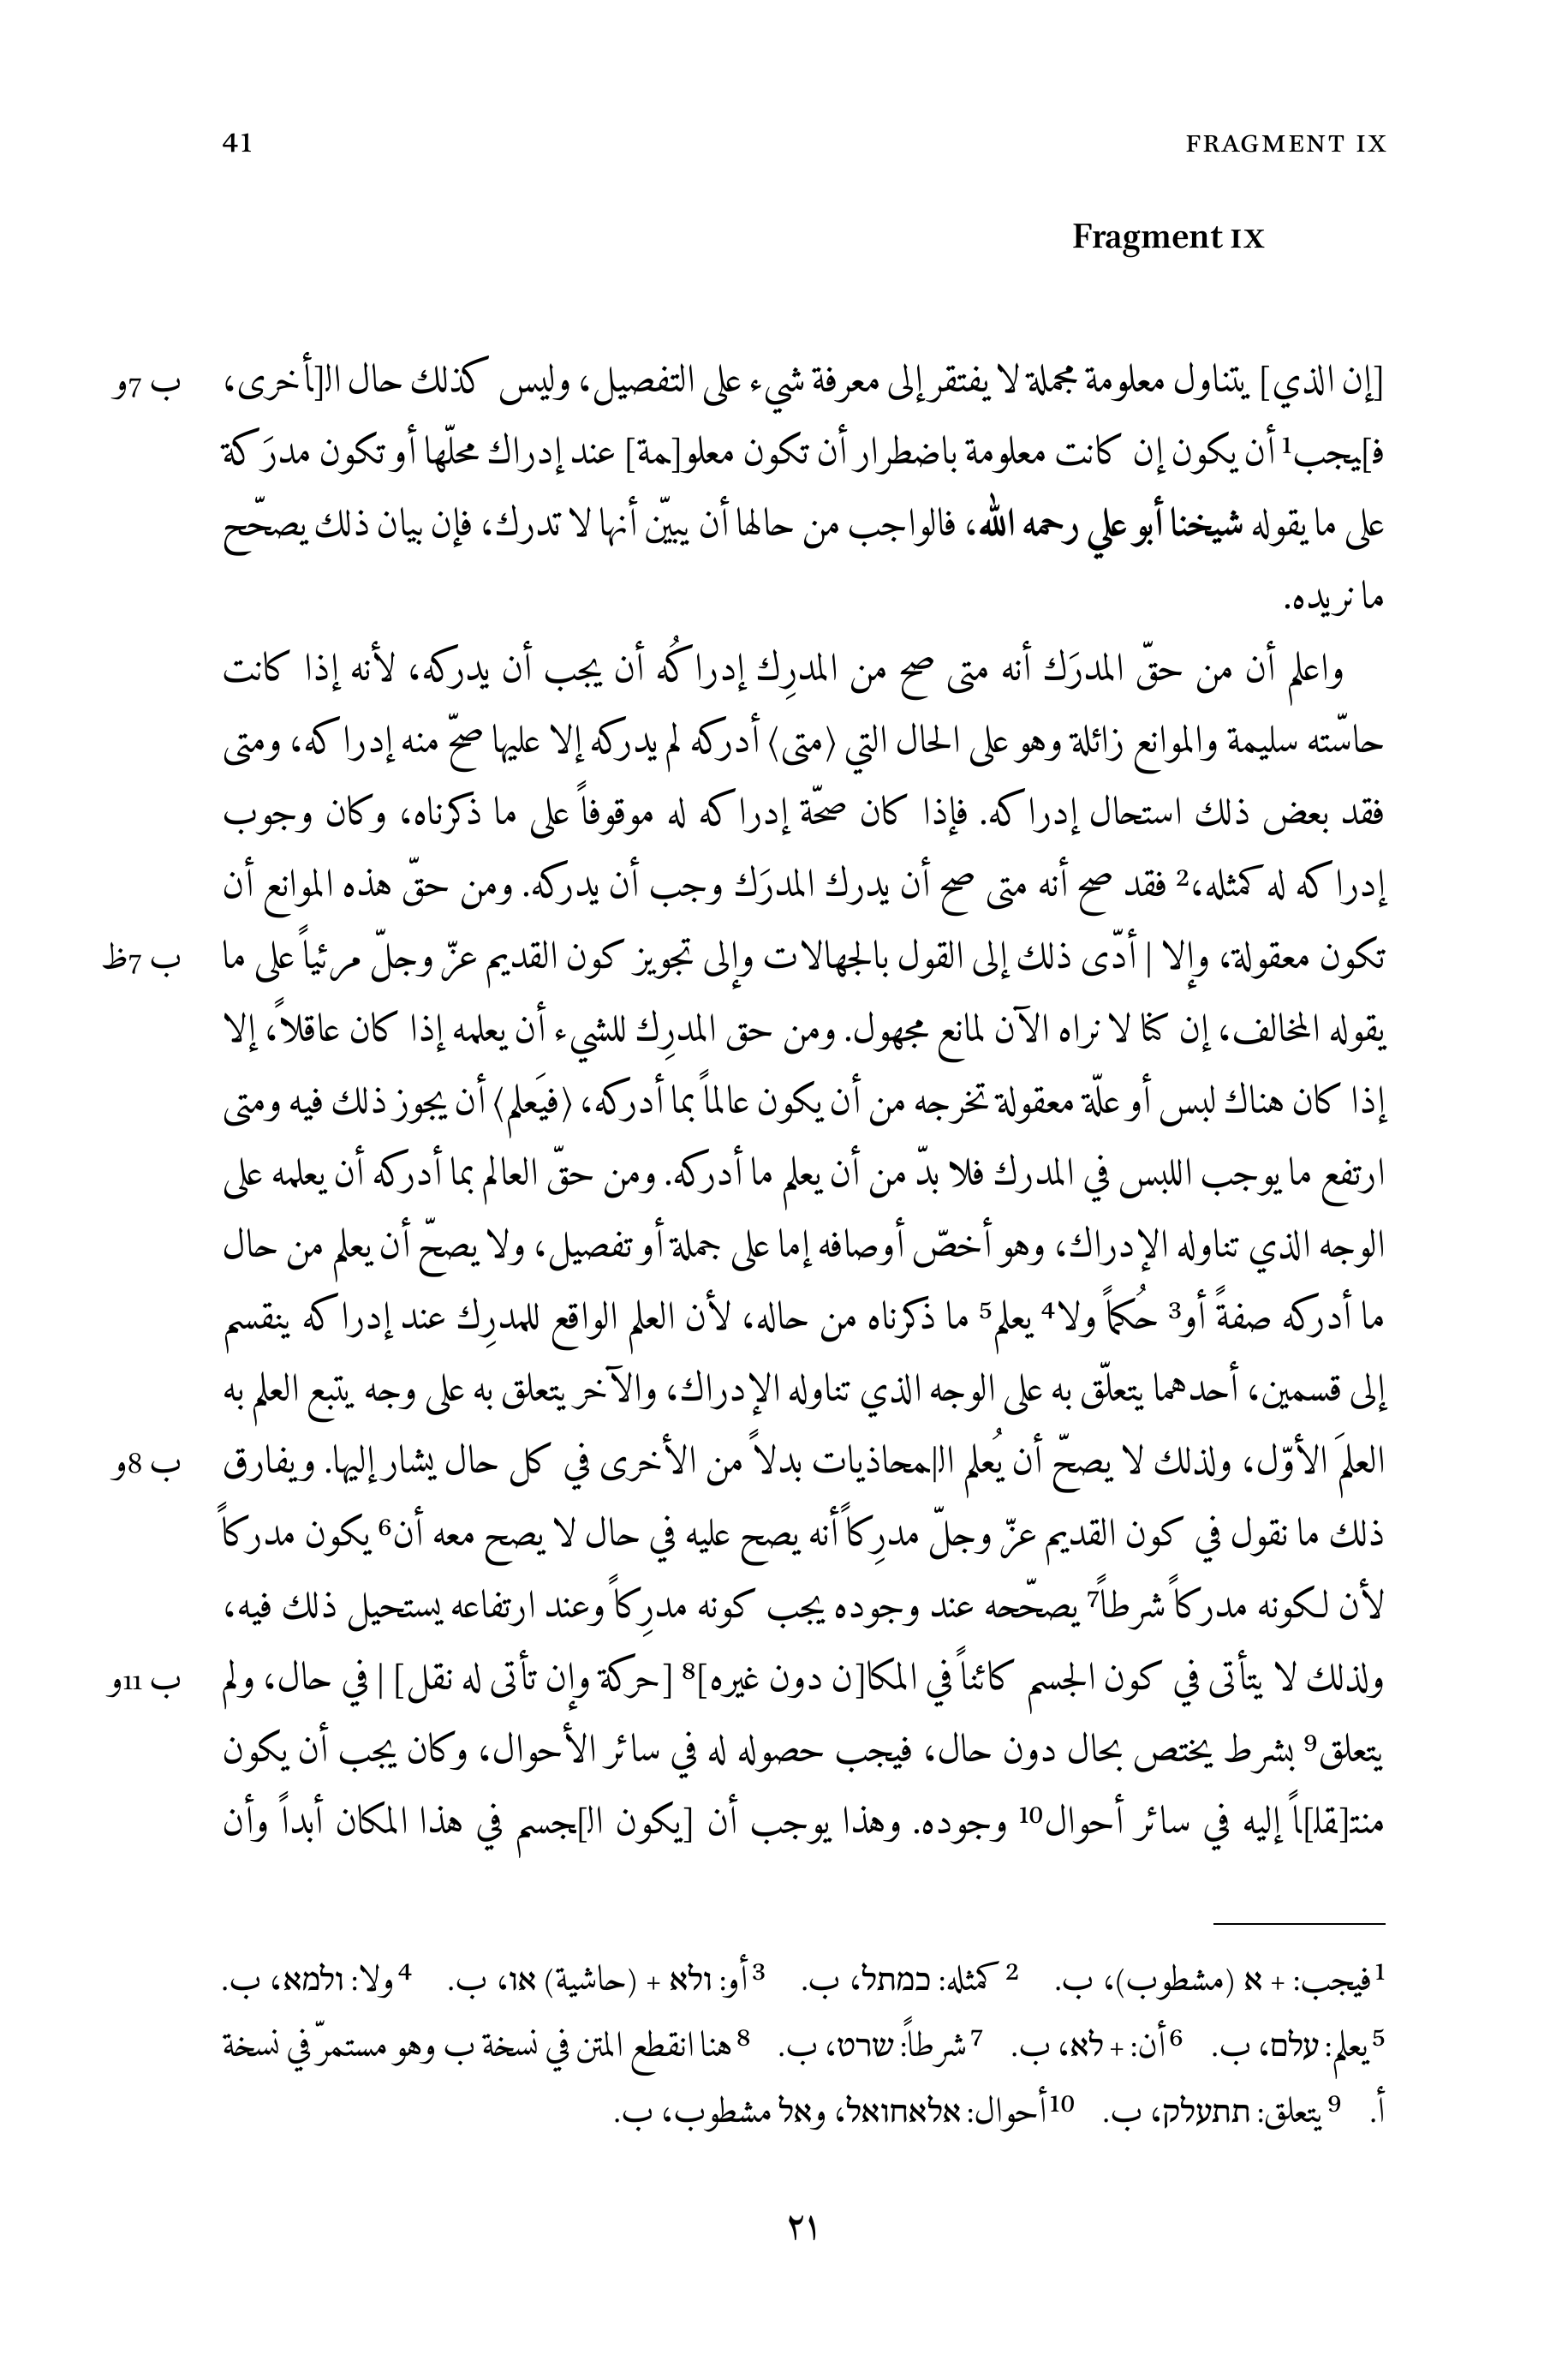 FRAGMENT IX 41
Fragment IX
[إن الذي] يتناول معلومة مجملة لا يفتقر إلى معرفة شيء على التفصيل، وليس كذلك حال الـ[ـأخرى، ب 7و
فـ]ـيجب1 أن يكون إن كانت معلومة باضطرار أن تكون معلو[مة] عند إدراك محلّها أو تكون مدرَكة
على ما يقوله شيخنا أبو علي رحمه الله، فالواجب من حالها أن يبيّن أنها لا تدرك، فإن بيان ذلك يصحّح
ما نريده.
واعلم أن من حقّ المدرَك أنه متى صح من المدرِك إدراكُه أن يجب أن يدركه، لأنه إذا كانت
حاسّته سليمة والموانع زائلة وهو على الحال التي ⟨متى⟩ أدركه لم يدركه إلا عليها صحّ منه إدراكه، ومتى
فقد بعض ذلك استحال إدراكه. فإذا كان صحّة إدراكه له موقوفاً على ما ذكرناه، وكان وجوب
إدراكه له كمثله،2 فقد صح أنه متى صح أن يدرك المدرَك وجب أن يدركه. ومن حقّ هذه الموانع أن
تكون معقولة، وإلا | أدّى ذلك إلى القول بالجهالات وإلى تجويز كون القديم عزّ وجلّ مرئياً على ما ب 7ظ
يقوله المخالف، إن كنا لا نراه الآن لمانع مجهول. ومن حق المدرِك للشيء أن يعلمه إذا كان عاقلاً، إلا
إذا كان هناك لبس أو علّة معقولة تخرجه من أن يكون عالماً بما أدركه، ⟨فيَعلم⟩ أن يجوز ذلك فيه ومتى
ارتفع ما يوجب اللبس في المدرك فلا بدّ من أن يعلم ما أدركه. ومن حقّ العالم بما أدركه أن يعلمه على
الوجه الذي تناوله الإدراك، وهو أخصّ أوصافه إما على جملة أو تفصيل، ولا يصحّ أن يعلم من حال
ما أدركه صفةً أو3 حُكماً ولا4 يعلم5 ما ذكرناه من حاله، لأن العلم الواقع للمدرِك عند إدراكه ينقسم
إلى قسمين، أحدهما يتعلّق به على الوجه الذي تناوله الإدراك، والآخر يتعلق به على وجه يتبع العلم به
العلمَ الأوّل، ولذلك لا يصحّ أن يُعلم الـ|ـمحاذيات بدلاً من الأخرى في كل حال يشار إليها. ويفارق ب 8و
ذلك ما نقول في كون القديم عزّ وجلّ مدرِكاً أنه يصح عليه في حال لا يصح معه أن6 يكون مدركاً
لأن لكونه مدركاً شرطاً7 يصحّحه عند وجوده يجب كونه مدرِكاً وعند ارتفاعه يستحيل ذلك فيه،
ولذلك لا يتأتى في كون الجسم كائناً في المكا[ن دون غيره]8 [حركة وإن تأتى له نقل] | في حال، ولم ب 11و
يتعلق9 بشرط يختص بحال دون حال، فيجب حصوله له في سائر الأحوال، وكان يجب أن يكون
منتـ[ـقلـ]ـاً إليه في سائر أحوال10 وجوده. وهذا يوجب أن [يكون الـ]ـجسم في هذا المكان أبداً وأن
1 فيجب: + א (مشطوب)، ب. 2 كمثله: כמתל، ب. 3 أو: ולא + (حاشية) או، ب. 4 ولا: ולמא، ب.
5 يعلم: עלם، ب. 6 أن: + לא، ب. 7 شرطاً: שרט، ب. 8 هنا انقطع المتن في نسخة ب وهو مستمرّ في نسخة
أ. 9 يتعلق: תתעלק، ب. 10 أحوال: אלאחואל، وאל مشطوب، ب.
٢١